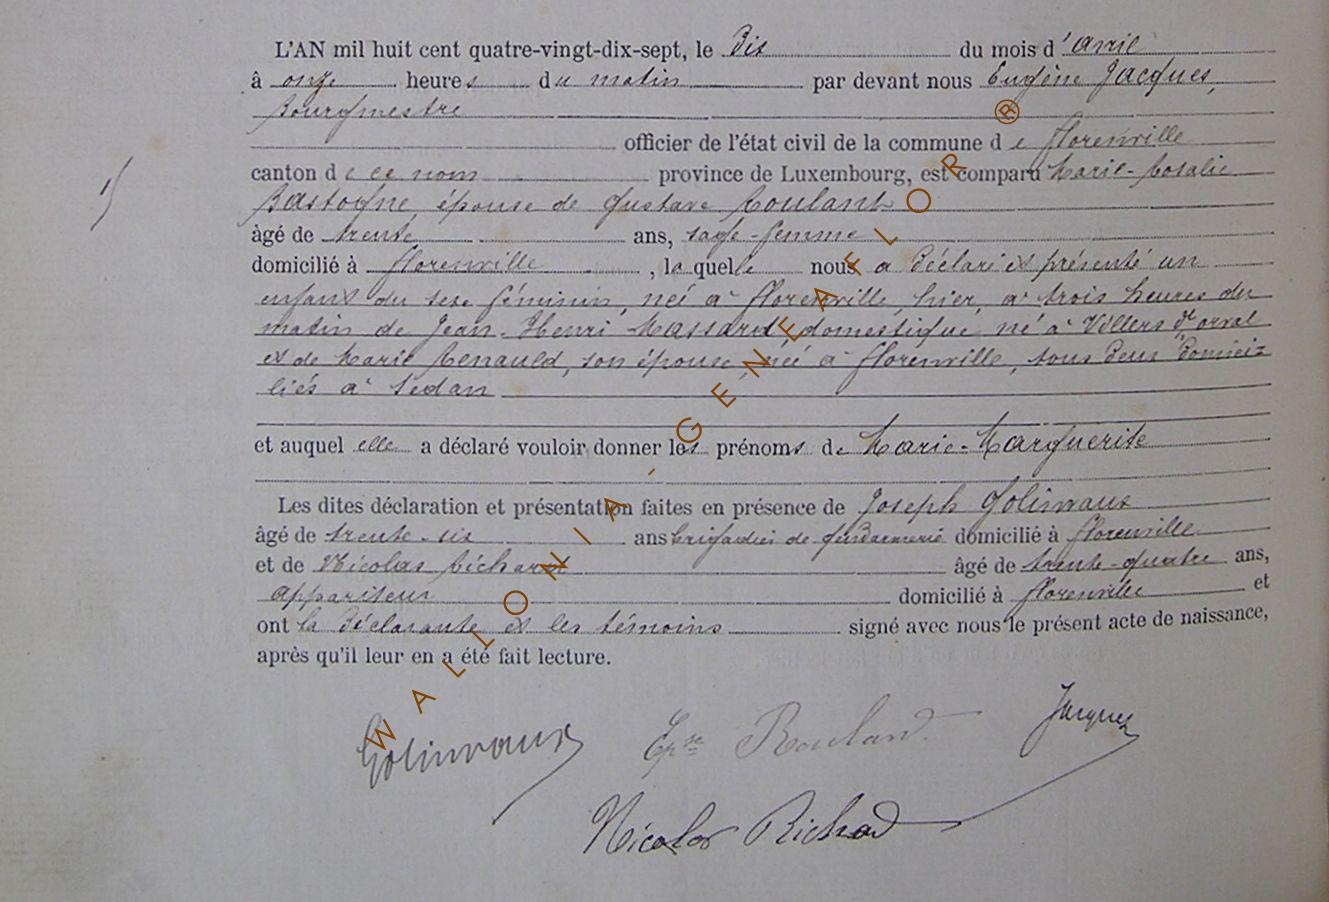 L'AN mil huit cent quatre-vingt-dix-sept, le Dix du mois d'avril
à onze heures du matin par devant nous Eugène Jacques,
Bourgmestre
officier de l'état civil de la commune de Florenville
canton de ce nom province de Luxembourg, est comparu Marie-Rosalie
Bastogne, épouse de Gustave Roulant
âgé de trente ans, sage-femme
domicilié à Florenville , la quelle nous a déclaré et présenté un
enfant du sexe féminin, née à Florenville, hier, à trois heures du
matin de Jean-Henri Massard, domestique, né à Villers dt orval
et de Marie Renauld, son épouse née à Florenville, tous deux domici-
liés à Sedan
et auquel elle a déclaré vouloir donner les prénoms de Marie-Marguerite
Les dites déclaration et présentation faites en présence de Joseph Golinvaux
âgé de trente-six ans brigadier de gendarmerie domicilié à Florenville
et de Nicolas Richard âgé de trente-quatre ans,
appariteur domicilié à Florenville et
ont la déclarante et les témoins signé avec nous le présent acte de naissance,
après qu'il leur en a été fait lecture.
Golinvaux Epse Rouland Jacques
Nicolas Richard
WALLONIA-GENEAFLOR®